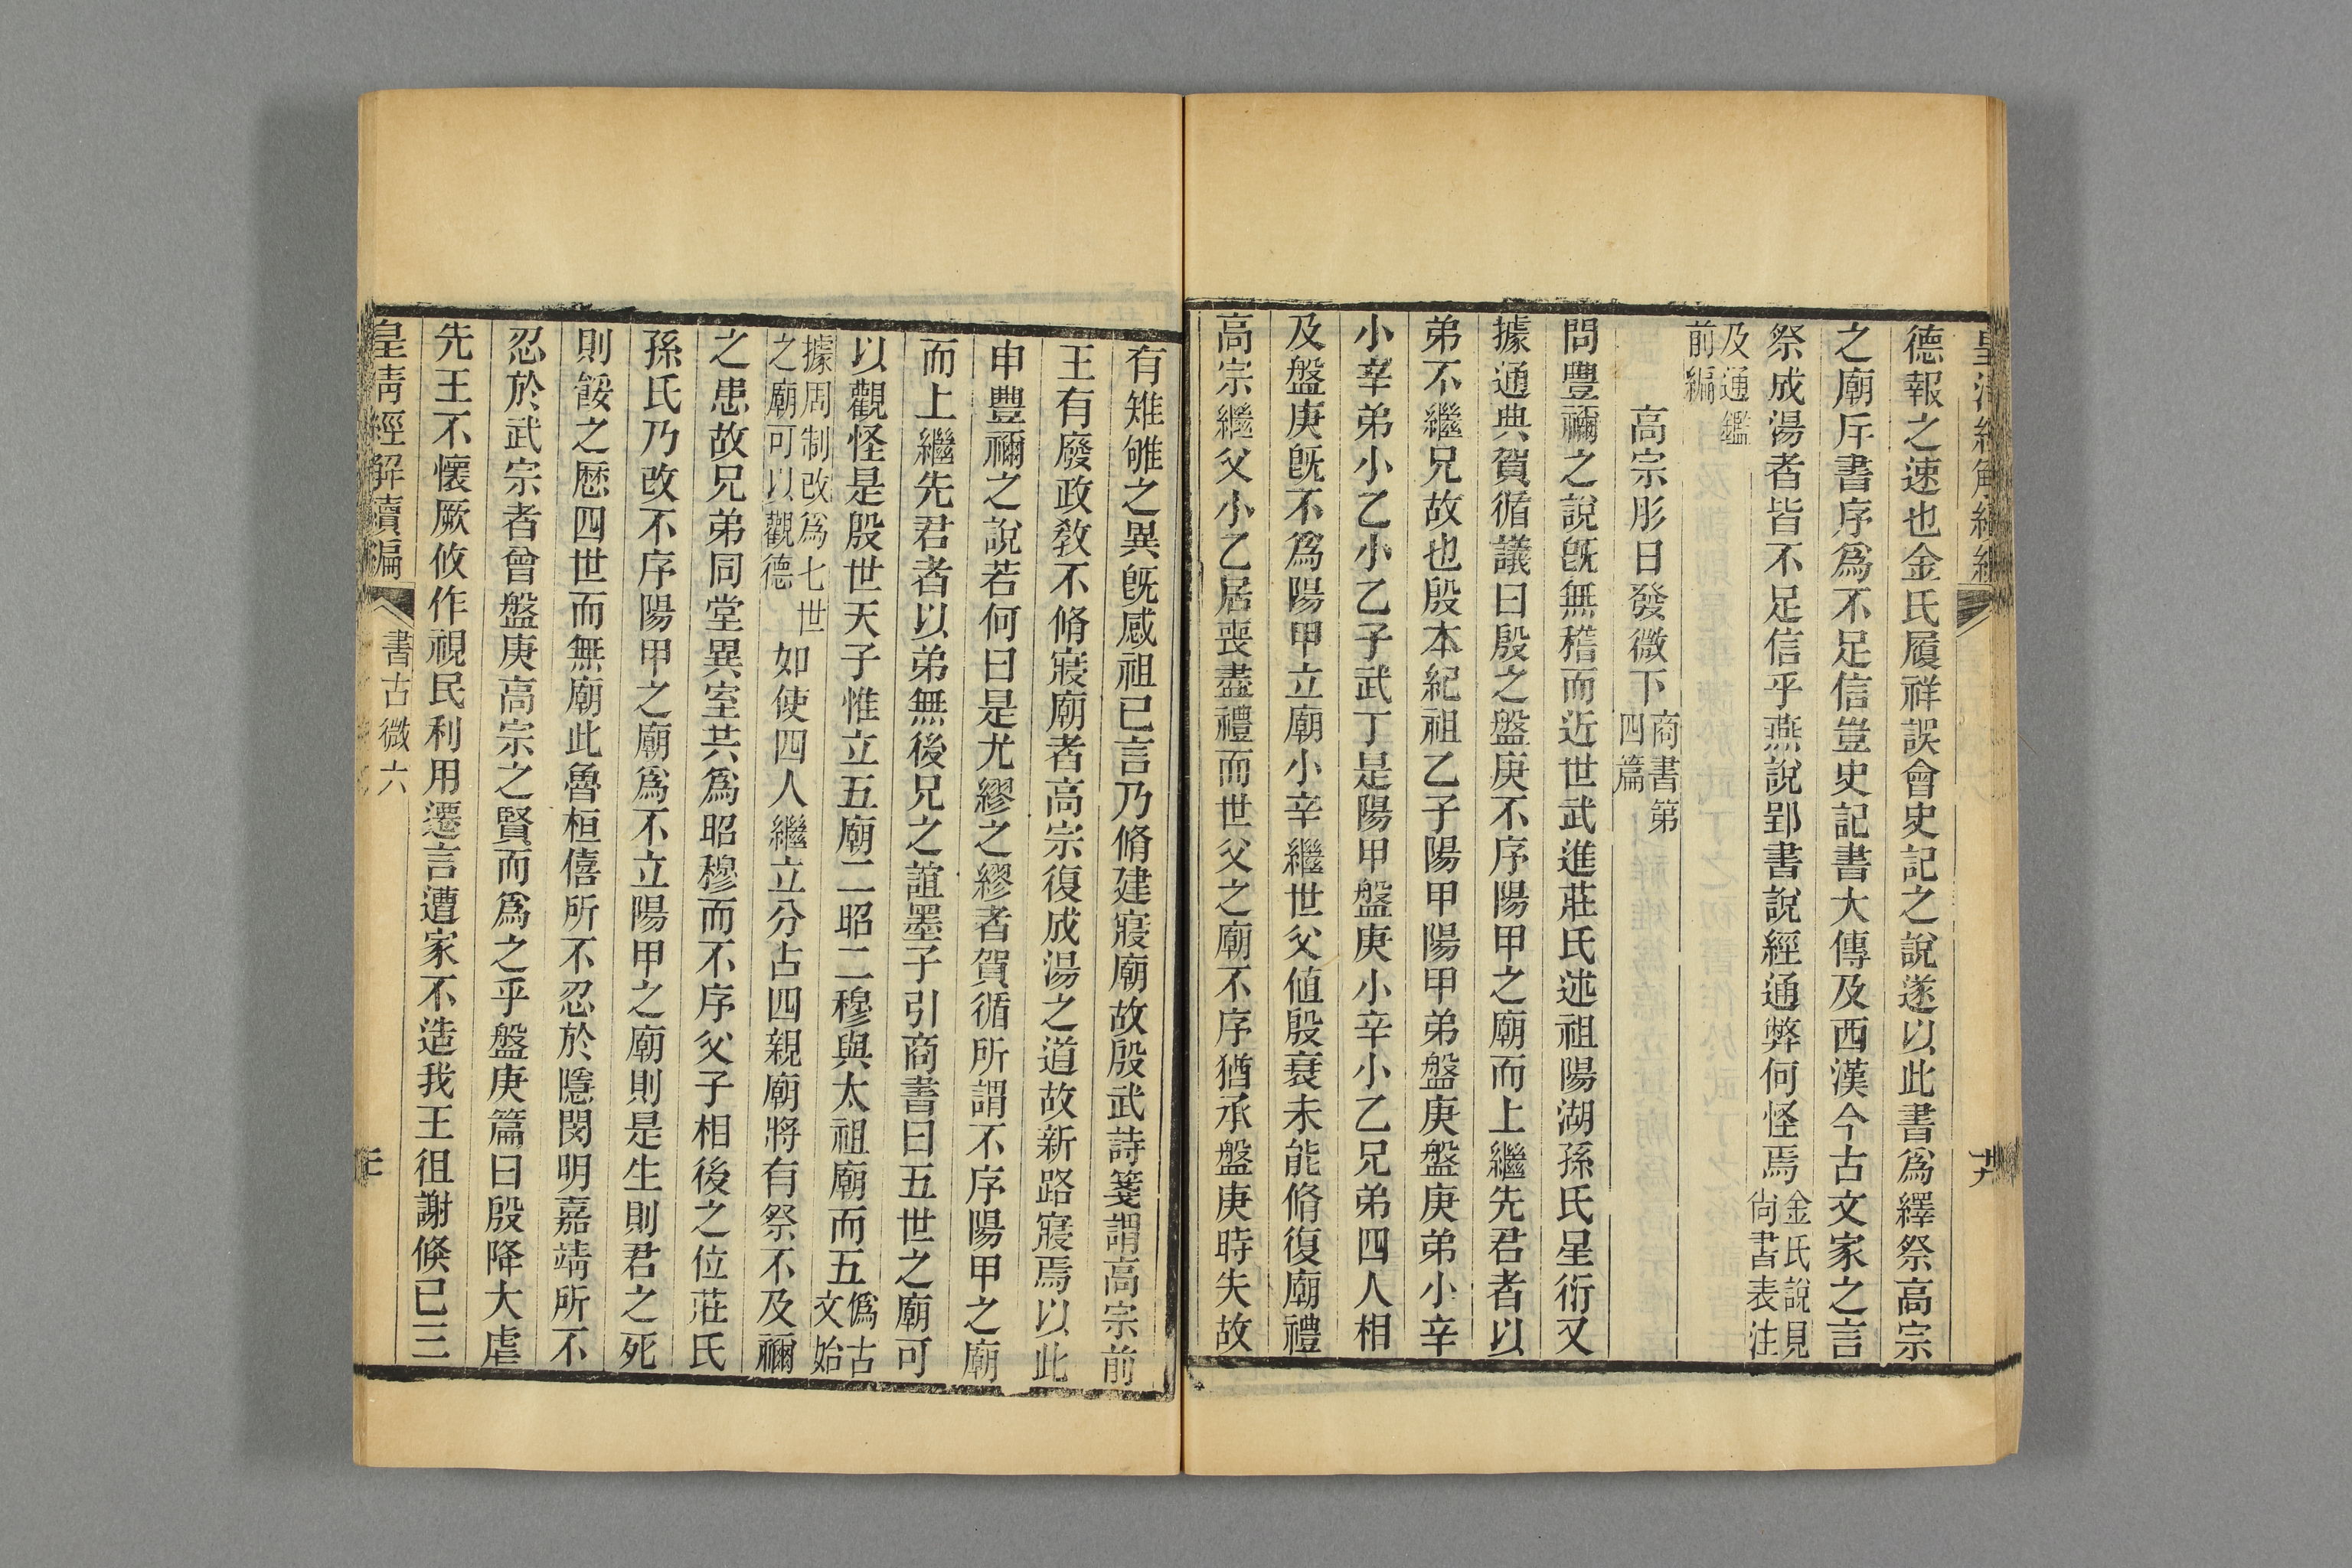 德報之速也金氏履祥誤會史記之說遂以此書爲繹祭高宗
之廟斥書序爲不足信豈史記書大傳及西漢今古文家之言
祭成湯者皆不足信乎燕說郢書說經通弊何怪焉金氏說見
尚書表注
及通鑑
前編
高宗肜日發微下商書第
四篇
問豐禰之說旣無稽而近世武進莊氏述祖陽湖孫氏星衍又
據通典賀循議曰殷之盤庚不序陽甲之廟而上繼先君者以
弟不繼兄故也殷本紀祖乙子陽甲陽甲弟盤庚盤庚弟小辛
小辛弟小乙小乙子武丁是陽甲盤庚小辛小乙兄弟四人相
及盤庚旣不爲陽甲立廟小辛繼世父値殷衰未能脩復廟禮
高宗繼父小乙居喪盡禮而世父之廟不序猶承盤庚時失故
有雉雊之異旣感祖已言乃脩建寢廟故殷武詩箋謂高宗前
王有廢政敎不脩寢廟者高宗復成湯之道故新路寢焉以此
申豐禰之說若何曰是尤繆之繆者賀循所謂不序陽甲之廟
而上繼先君者以弟無後兄之誼墨子引商書曰五世之廟可
以觀怪是殷世天子惟立五廟二昭二穆與太祖廟而五僞古
文始
據周制改爲七世
之廟可以觀德如使四人繼立分占四親廟將有祭不及禰
之患故兄弟同堂異室共爲昭穆而不序父子相後之位莊氏
孫氏乃改不序陽甲之廟爲不立陽甲之廟則是生則君之死
則餒之歷四世而無廟此魯桓僖所不忍於隱閔明嘉靖所不
忍於武宗者曾盤庚高宗之賢而爲之乎盤庚篇曰殷降大虐
先王不懷厥攸作視民利用遷言遭家不造我王徂謝倏已三
皇淸經解續編
書古微六